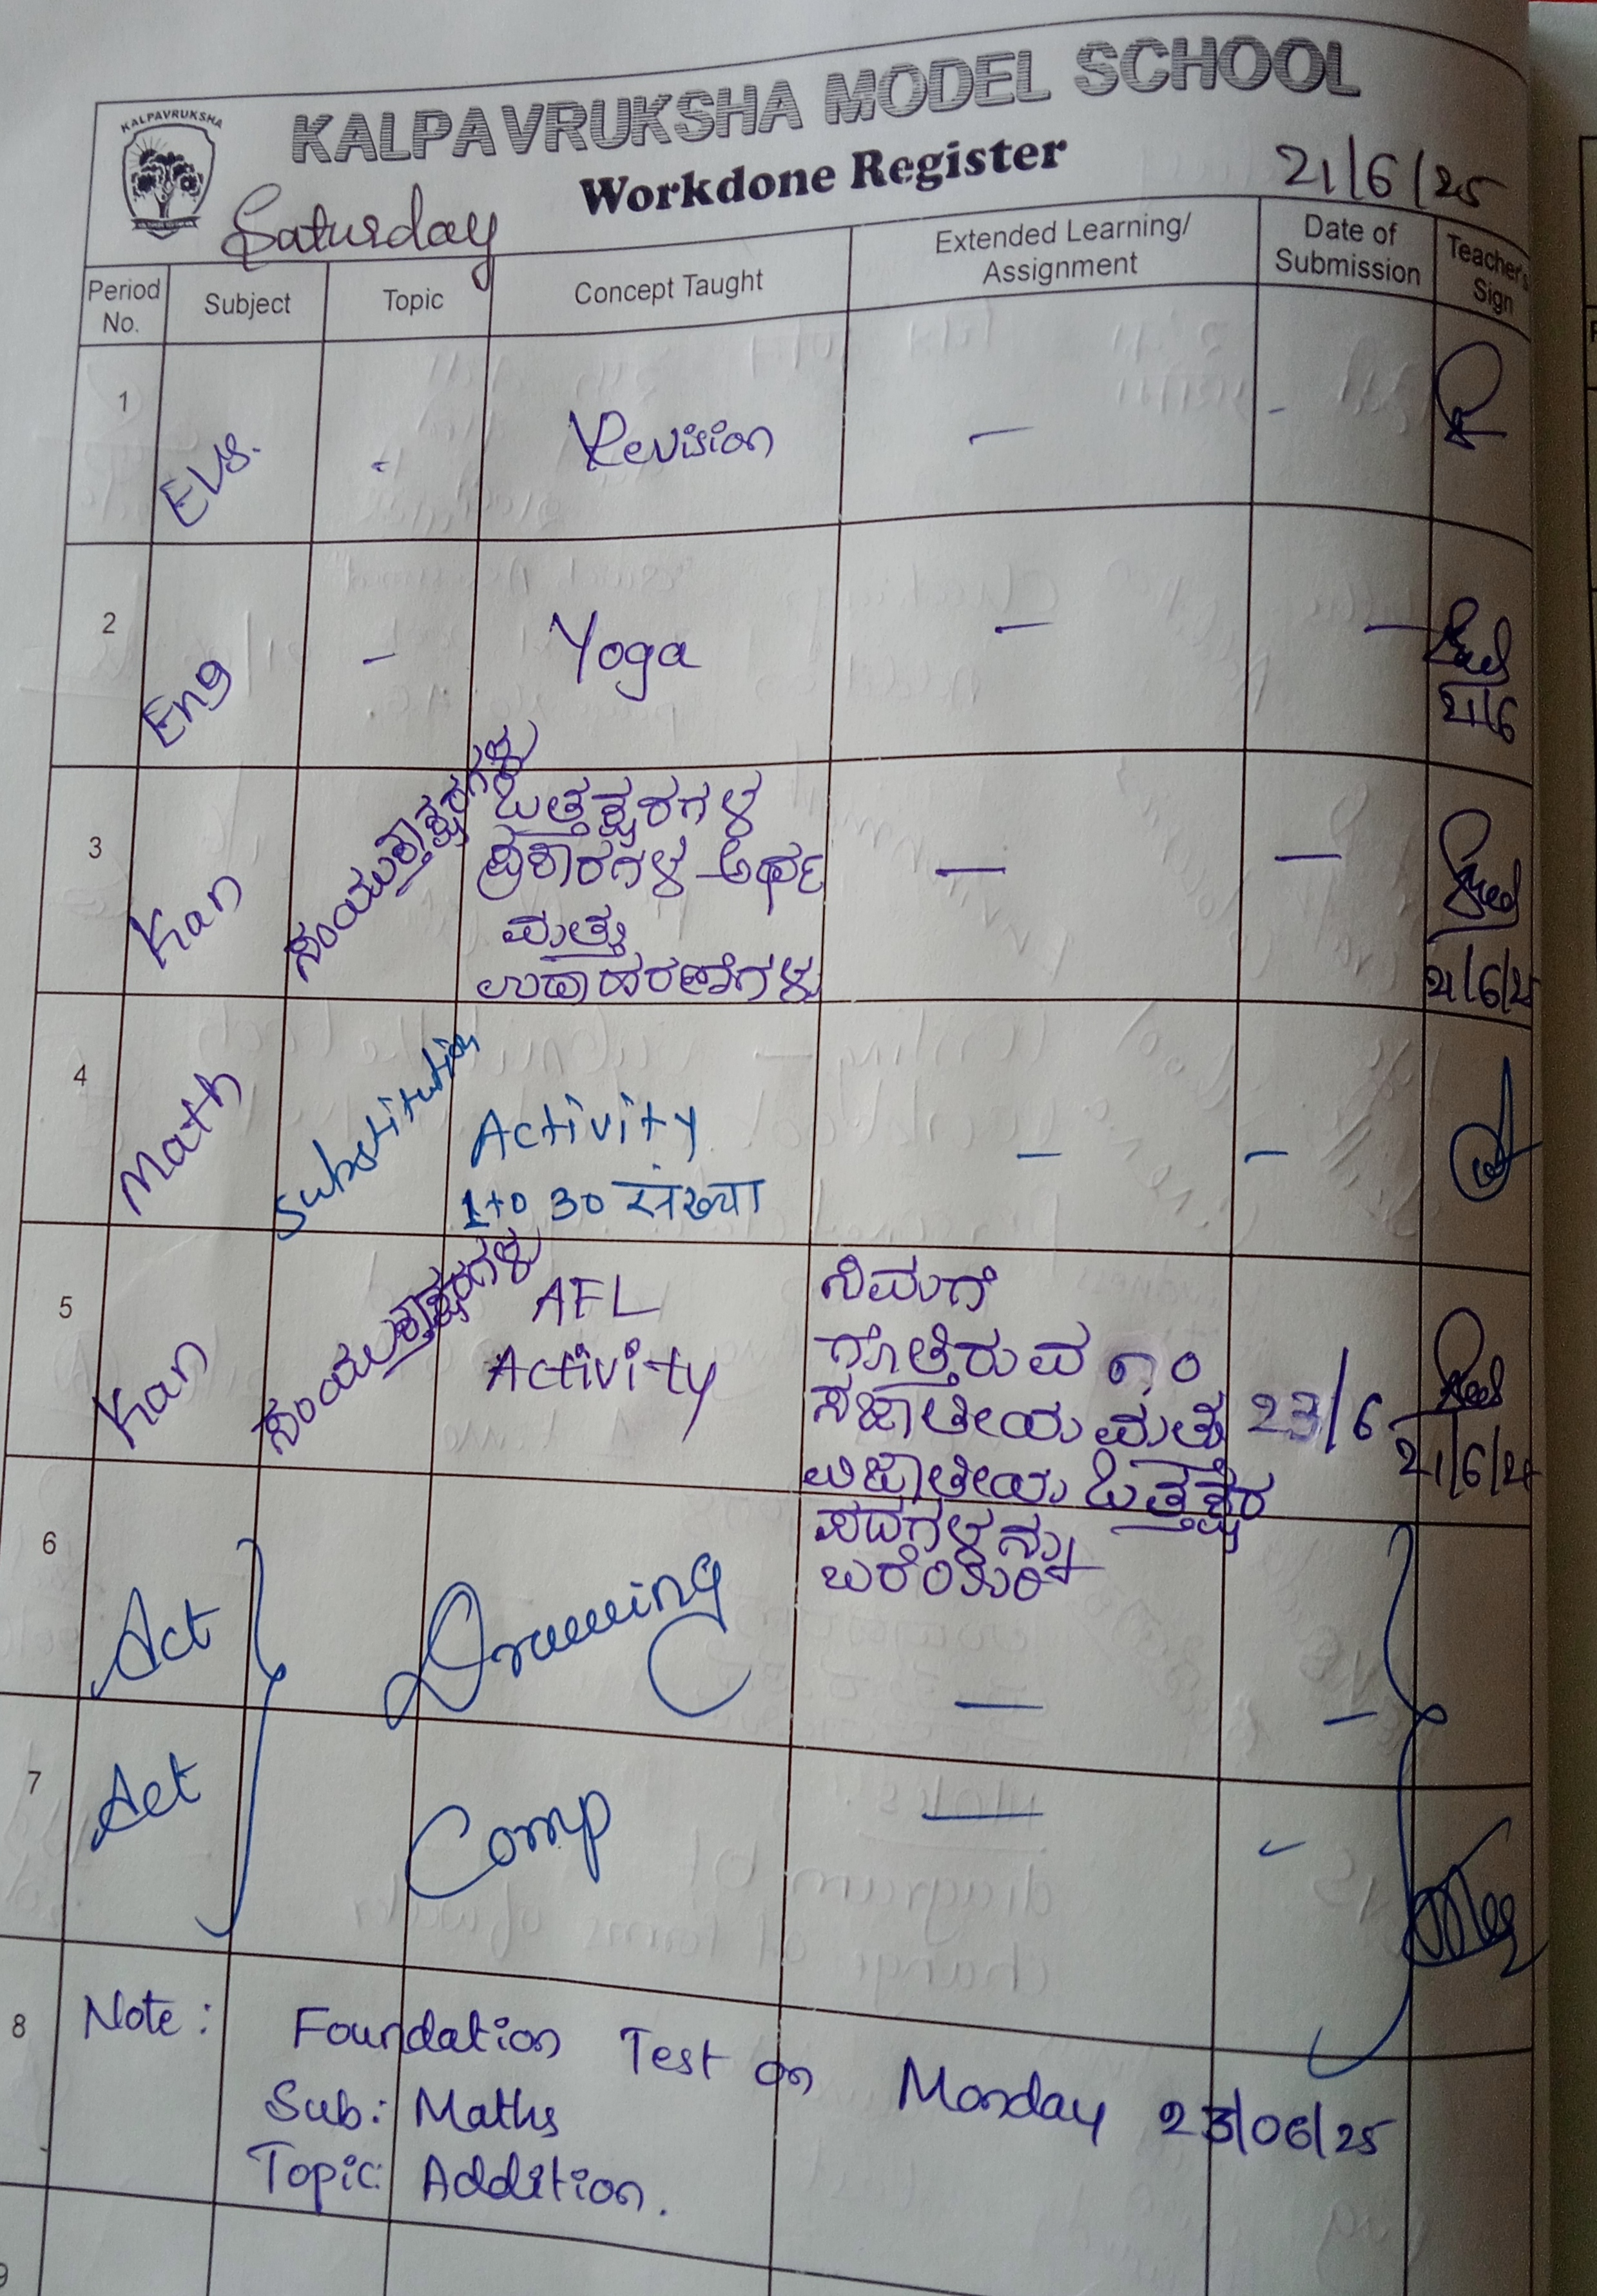 KALPAVRUKSHA
KALPAVRUKSHA MODEL SCHOOL
Workdone Register
Saturday
21/6/25
Period No.
Subject
Topic
Concept Taught
Extended Learning/
Assignment
Date of
Submission
Teacher's
Sign
1 EVS. - Revision - -
2 Eng - Yoga - - 21/6
3 Kan ಸಂಯುಕ್ತಾಕ್ಷರಗಳು
ಒತ್ತಕ್ಷರಗಳ
ಪ್ರಕಾರಗಳ ಅರ್ಥ
ಮತ್ತು
ಉದಾಹರಣೆಗಳು
- - 21/6/25
4 Math Substitution Activity - -
1 to 30 संख्या
5 Kan ಸಂಯುಕ್ತಾಕ್ಷರಗಳು AFL
Activity
ನಿಮಗೆ
ಗೊತ್ತಿರುವ ೧೦
ಸಜಾತೀಯ ಮತ್ತು 23/6
ವಿಜಾತೀಯ ಒತ್ತಕ್ಷರ
ಪದಗಳನ್ನು
21/6/25
6 Act Drawing - -
7 Act Comp - -
8 Note: Foundation Test on Monday 23/06/25
Sub: Maths
Topic: Addition.
9